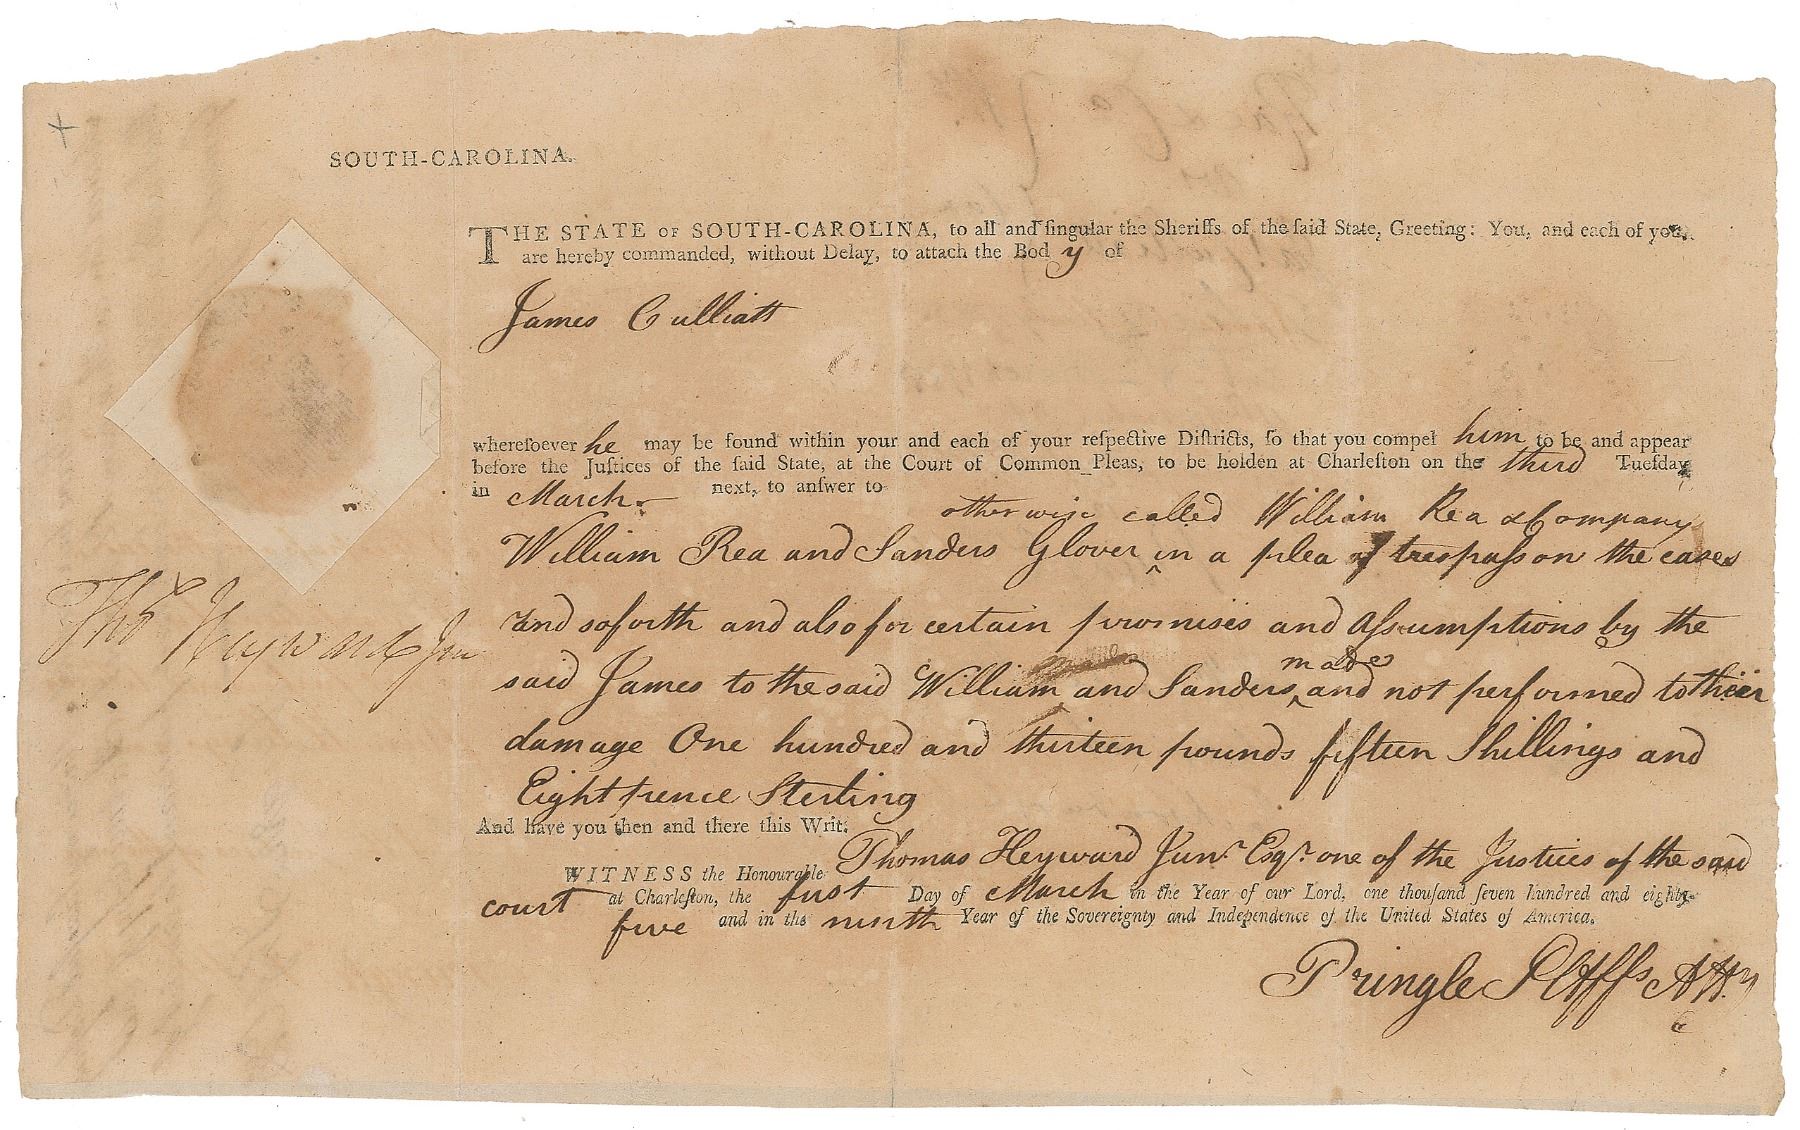 SOUTH-CAROLINA.
THE STATE OF SOUTH-CAROLINA, to all and ſingular the Sheriffs of the ſaid State, Greeting: You, and each of you,
are hereby commanded, without Delay, to attach the Body of
James Culliatt
whereſoever he may be found within your and each of your reſpective Diſtricts, ſo that you compel him to be and appear
before the Juſtices of the ſaid State, at the Court of Common Pleas, to be holden at Charleſton on the third Tueſday
in March next, to anſwer to
otherwise called William Rea & Company
William Rea and Sanders Glover ^ in a plea of trespass on the cases
and soforth and also for certain promises and Assumptions by the
made
said James to the said William and Sanders ^ and not performed to their
damage One hundred and thirteen pounds fifteen Shillings and
Eight pence Sterling
And have you then and there this Writ.
WITNESS the Honourable Thomas Heyward Junr. Esqr. one of the Justices of the said
court at Charleſton, the first Day of March in the Year of our Lord, one thouſand ſeven hundred and eighty-
five and in the ninth Year of the Sovereignty and Independence of the United States of America.
Thos Heyward Jun
Pringle Plffs Atty